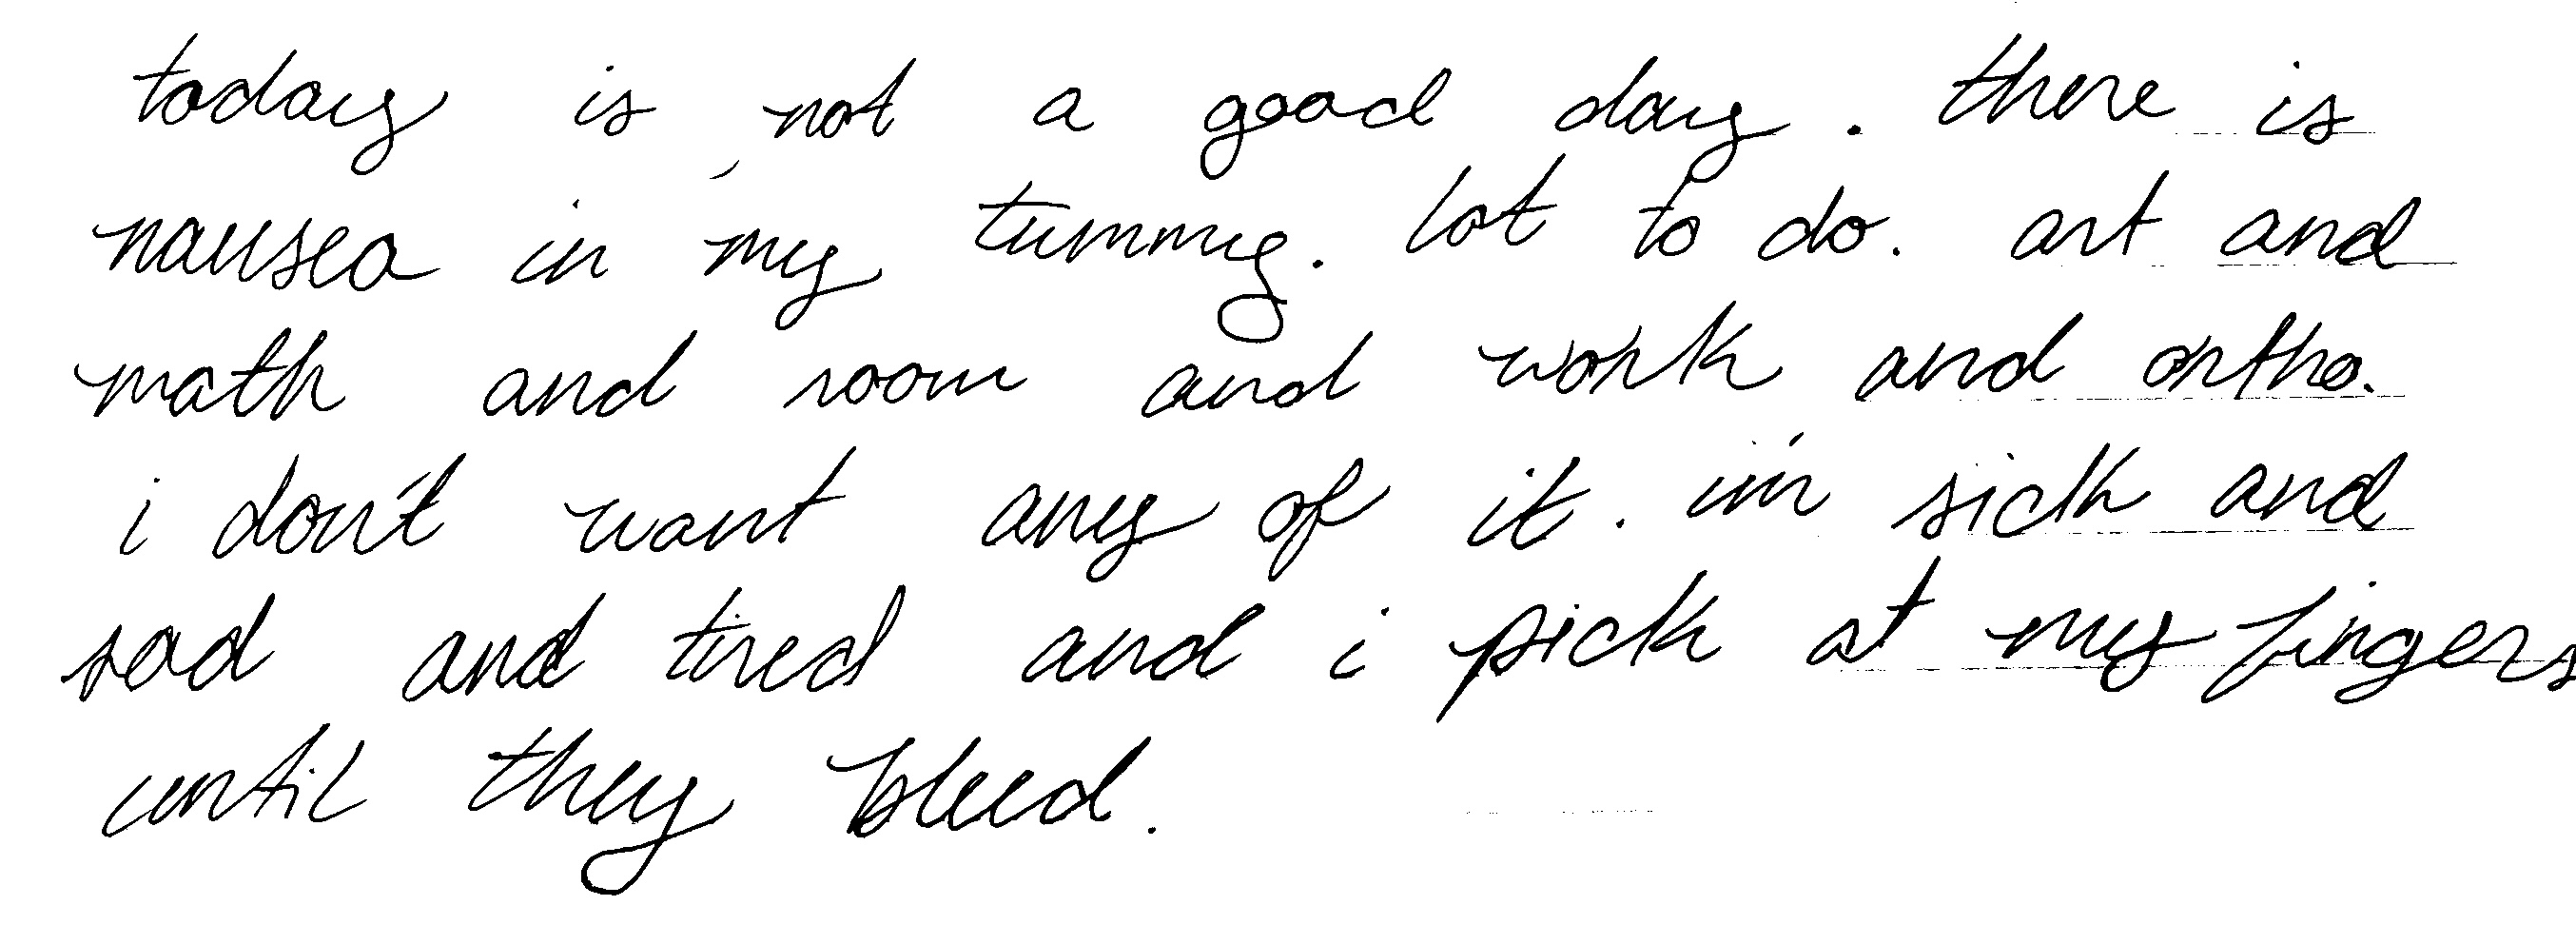 today is not a good day. there is
nausea in my tummy. lot to do. art and
math and room and work and ortho.
i don't want any of it. i'm sick and
sad and tired and i pick at my fingers
until they bleed.